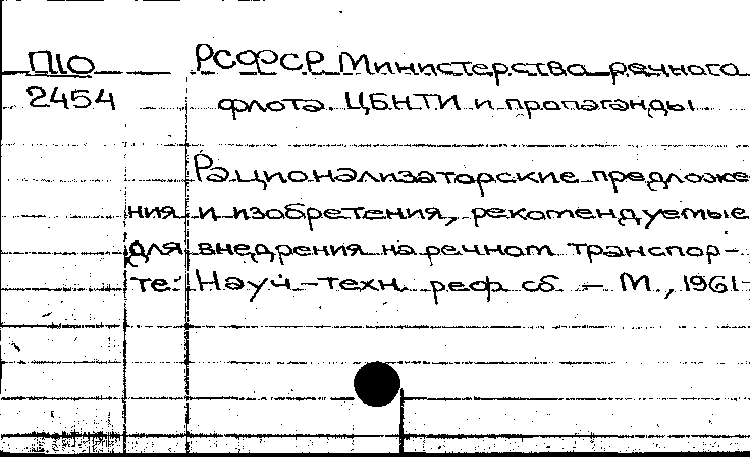 П10 РСФСР Министерства речного
2454 флота. ЦБНТИ и пропаганды
Рационализаторские предложе
ния и изобретения, рекомендуемые
для внедрения на речном транспор-
те: Науч.-техн. реф. сб. - М., 1961-